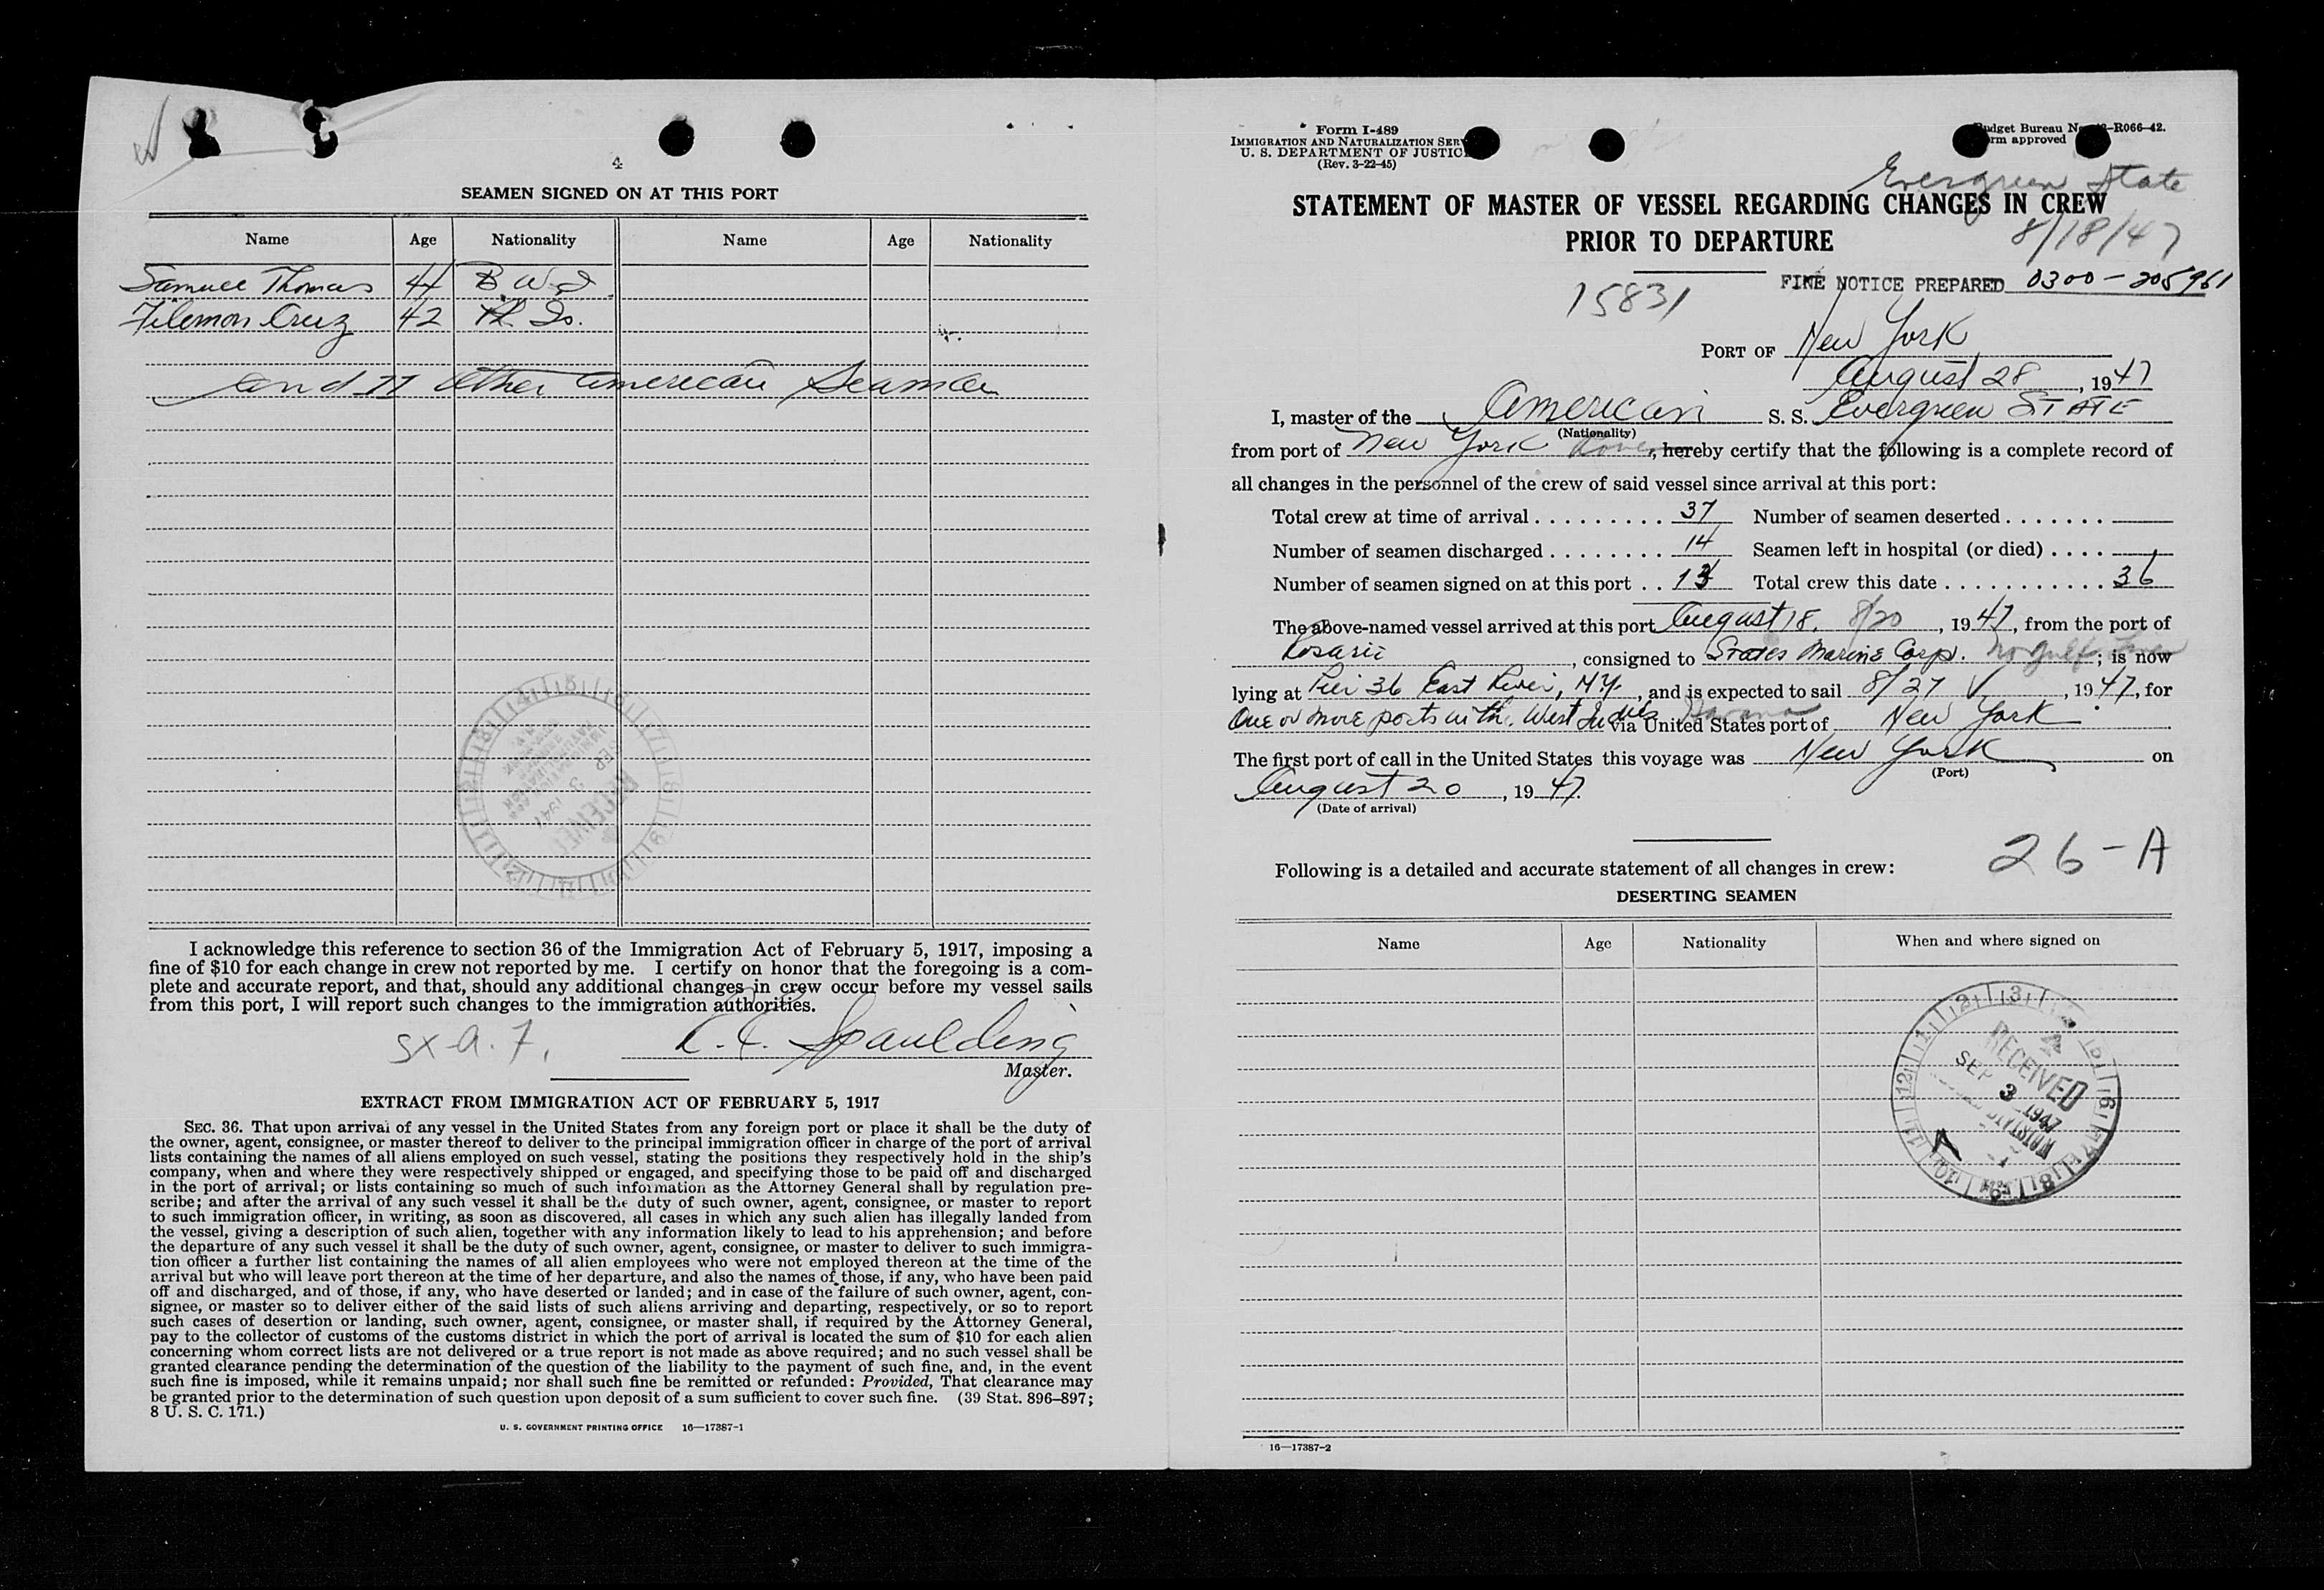 4
SEAMEN SIGNED ON AT THIS PORT
Name Age Nationality Name Age Nationality
Samuel Thomas 44 B.W.I.
Filemon Cruz 42 Is.
and 11 other american Seaman
I acknowledge this reference to section 36 of the Immigration Act of February 5, 1917, imposing a
fine of $10 for each change in crew not reported by me. I certify on honor that the foregoing is a com-
plete and accurate report, and that, should any additional changes in crew occur before my vessel sails
from this port, I will report such changes to the immigration authorities.
Spaulding
Master.
EXTRACT FROM IMMIGRATION ACT OF FEBRUARY 5, 1917
SEC. 36. That upon arrival of any vessel in the United States from any foreign port or place it shall be the duty of
the owner, agent, consignee, or master thereof to deliver to the principal immigration officer in charge of the port of arrival
lists containing the names of all aliens employed on such vessel, stating the positions they respectively hold in the ship's
company, when and where they were respectively shipped or engaged, and specifying those to be paid off and discharged
in the port of arrival; or lists containing so much of such information as the Attorney General shall by regulation pre-
scribe; and after the arrival of any such vessel it shall be the duty of such owner, agent, consignee, or master to report
to such immigration officer, in writing, as soon as discovered, all cases in which any such alien has illegally landed from
the vessel, giving a description of such alien, together with any information likely to lead to his apprehension; and before
the departure of any such vessel it shall be the duty of such owner, agent, consignee, or master to deliver to such immigra-
tion officer a further list containing the names of all alien employees who were not employed thereon at the time of the
arrival but who will leave port thereon at the time of her departure, and also the names of those, if any, who have been paid
off and discharged, and of those, if any, who have deserted or landed; and in case of the failure of such owner, agent, con-
signee, or master so to deliver either of the said lists of such aliens arriving and departing, respectively, or so to report
such cases of desertion or landing, such owner, agent, consignee, or master shall, if required by the Attorney General,
pay to the collector of customs of the customs district in which the port of arrival is located the sum of $10 for each alien
concerning whom correct lists are not delivered or a true report is not made as above required; and no such vessel shall be
granted clearance pending the determination of the question of the liability to the payment of such fine, and, in the event
such fine is imposed, while it remains unpaid; nor shall such fine be remitted or refunded: Provided, That clearance may
be granted prior to the determination of such question upon deposit of a sum sufficient to cover such fine. (39 Stat. 896–897;
8 U. S. C. 171.)
U. S. GOVERNMENT PRINTING OFFICE 16—17387-1
Form I-489
IMMIGRATION AND NATURALIZATION SER
U. S. DEPARTMENT OF JUSTIC
(Rev. 3-22-45)
udget Bureau N -R066-42.
rm approved
Evergreen State
STATEMENT OF MASTER OF VESSEL REGARDING CHANGES IN CREW
PRIOR TO DEPARTURE
8/18/47
FINE NOTICE PREPARED 0300-205961
15831
PORT OF New York
August 28, 1947
I, master of the American S. S. Evergreen STATE
(Nationality)
from port of New York, hereby certify that the following is a complete record of
all changes in the personnel of the crew of said vessel since arrival at this port:
Total crew at time of arrival . . . . . . . . . 37 Number of seamen deserted . . . . . . .
Number of seamen discharged . . . . . . . . 14 Seamen left in hospital (or died) . . . .
Number of seamen signed on at this port . . 13 Total crew this date . . . . . . . . . . . 36
The above-named vessel arrived at this port August 18, 8/20, 1947, from the port of
Rosario, consigned to States Marine Corp. ; is now
lying at Pier 36 East River, NY., and is expected to sail 8/27, 1947, for
One or more ports in the West Indies Havana via United States port of New York
The first port of call in the United States this voyage was New York on
(Port)
August 20, 1947.
(Date of arrival)
26-A
Following is a detailed and accurate statement of all changes in crew:
DESERTING SEAMEN
Name Age Nationality When and where signed on
RECEIVED
SEP 3 1947
DIVISION
16—17387-2